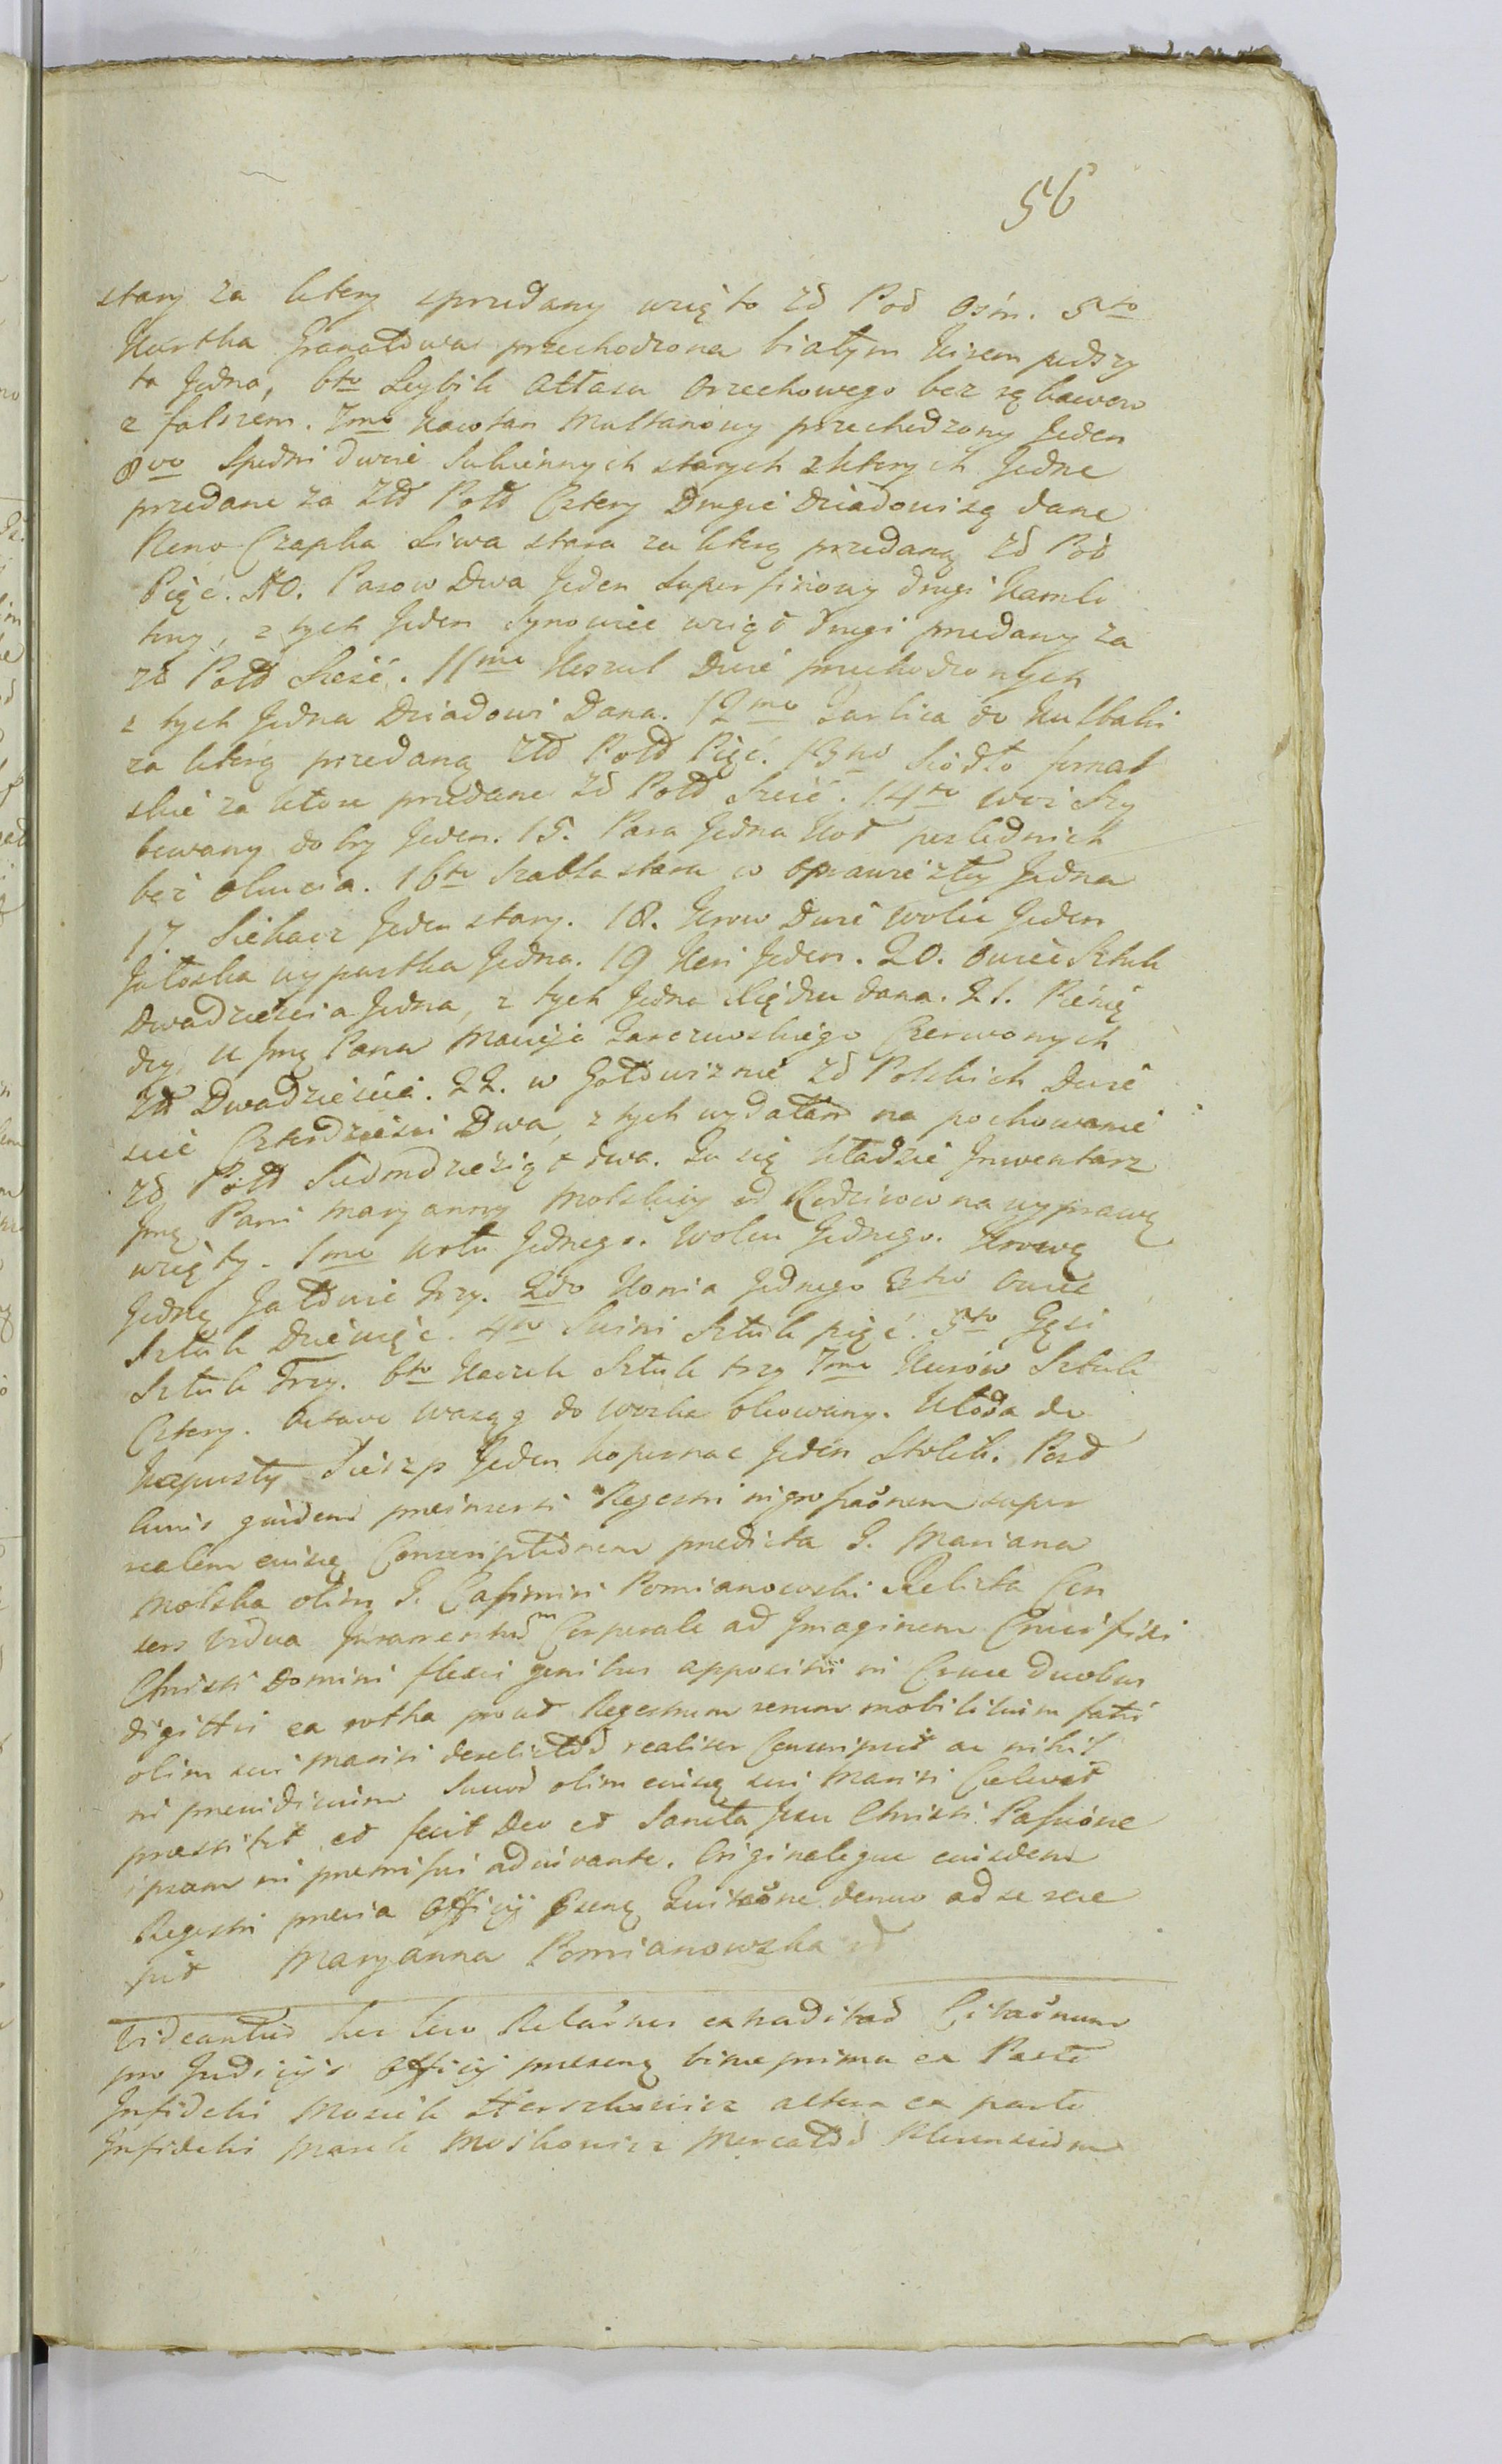 56
stary za ktery sprzedany wzięto zł Pol Osm. 5to
Kurtka Granatowa przechodzona białym Lisem podszy
ta Jedna, 6to Leybik Atłasu Orzechowego bez rękawow
z fałszem. 7mo Kawtan Multanowy przechodzony Jeden
8vo Spodni dwoie Sukiennych starych z ktorych Jedne
przedane za Złł Poll Cztery Drugie Dziadowi są dane
Neno Czapka Siwa stara za ktorą przedaną zł Pol
Pięć. 10. Pasow Dwa Jeden Superfinowy drugi Kamlo
towy, z tych Jeden Synowiec wziął drugi przedany za
zł Poll Sześć. 11mo Koszul Dwie przechodzonych
z tych Jedna Dziadowi Dana. 12mo do Kulbaki
za ktorą przedaną Złł Poll Pięć. 13no Siodło fornal
skie za ktore przedane Zł Poll Sześć. 14to woz Szy
bowany dobry Jeden. 15. Para Jedna Koł poslednich
bez okucia. 16to Szabla stara w oprawie złey Jedna
17. Siekacz Jeden stary. 18. Krow Dwie Wolic Jeden
Jałoszka wypustka Jedna. 19 Kon Jeden. 20. Owiec Sztuk
Dwadziescia Jedna, z tych Jedna Xiędzu dana. 21. Pienię
dzy u Jmę Pana Macieja Czerwonych
Złł Dwadziescia. 22. w Gotowiznie Zł Polskich Dwie
scie Czterdziesci Dwa, z tych wydałam na pochowanie
zł Poll Siedmdziesiąt dwa. Tu się kładzie Inwentarz
Jmę Pani Maryanny Molskiey od Rodzicow na wyprawę
wzięty. 1mo Wołu Jednego. Wolca Jednego. Krowę
Jednę Jałowic trzy. 2do Konia Jednego 3tio Owiec
Sztuk Dziewięć. 4to Swini Sztuk pięć. 5to Gęsi
Sztuk Trzy. 6to Kaczek Sztuk trzy 7mo Kurow Sztuk
Cztery. Wasąg do Wozka okowany. Kłoda do
Kapusty Sierzp Jeden kopernac Jeden Stolik. Post
cuius quidem præinserti Regestri ingrossaõnem super
realem eiusq Conscriptionem prædicta G. Mariana
Molska olim G. Casimiri Pomianowski Relicta Con
sors Vidua Juramentum Corporale ad Imaginem Crucifixi
Christi Domini flexis genibus appositis in Cruce duobus
digittis ea rotha prout Regestrum rerum mobilium fatti
olim sui Mariti derelictor realiter Conscripsit ac nihil
in præiudicium Succor olim eiusq sui Mariti Celavit
præstitit et fecit Deo et Sancta Jesu Christi Passione
ipsam in præmissis adiuvante. Originaleque eiusdem
Regestri prævia Officij præsenq Quitaõne denuo ad se rece
pit Maryanna Pomianowska
Videantur hoc loco Relaõnes extraditar Citaõnum
pro Judicijs Officij præsenq binæ prima ex Parte
Infidelis Mosiek Herszkowicz altera ex parte
Infidelis Marek Moskowicz Mercator